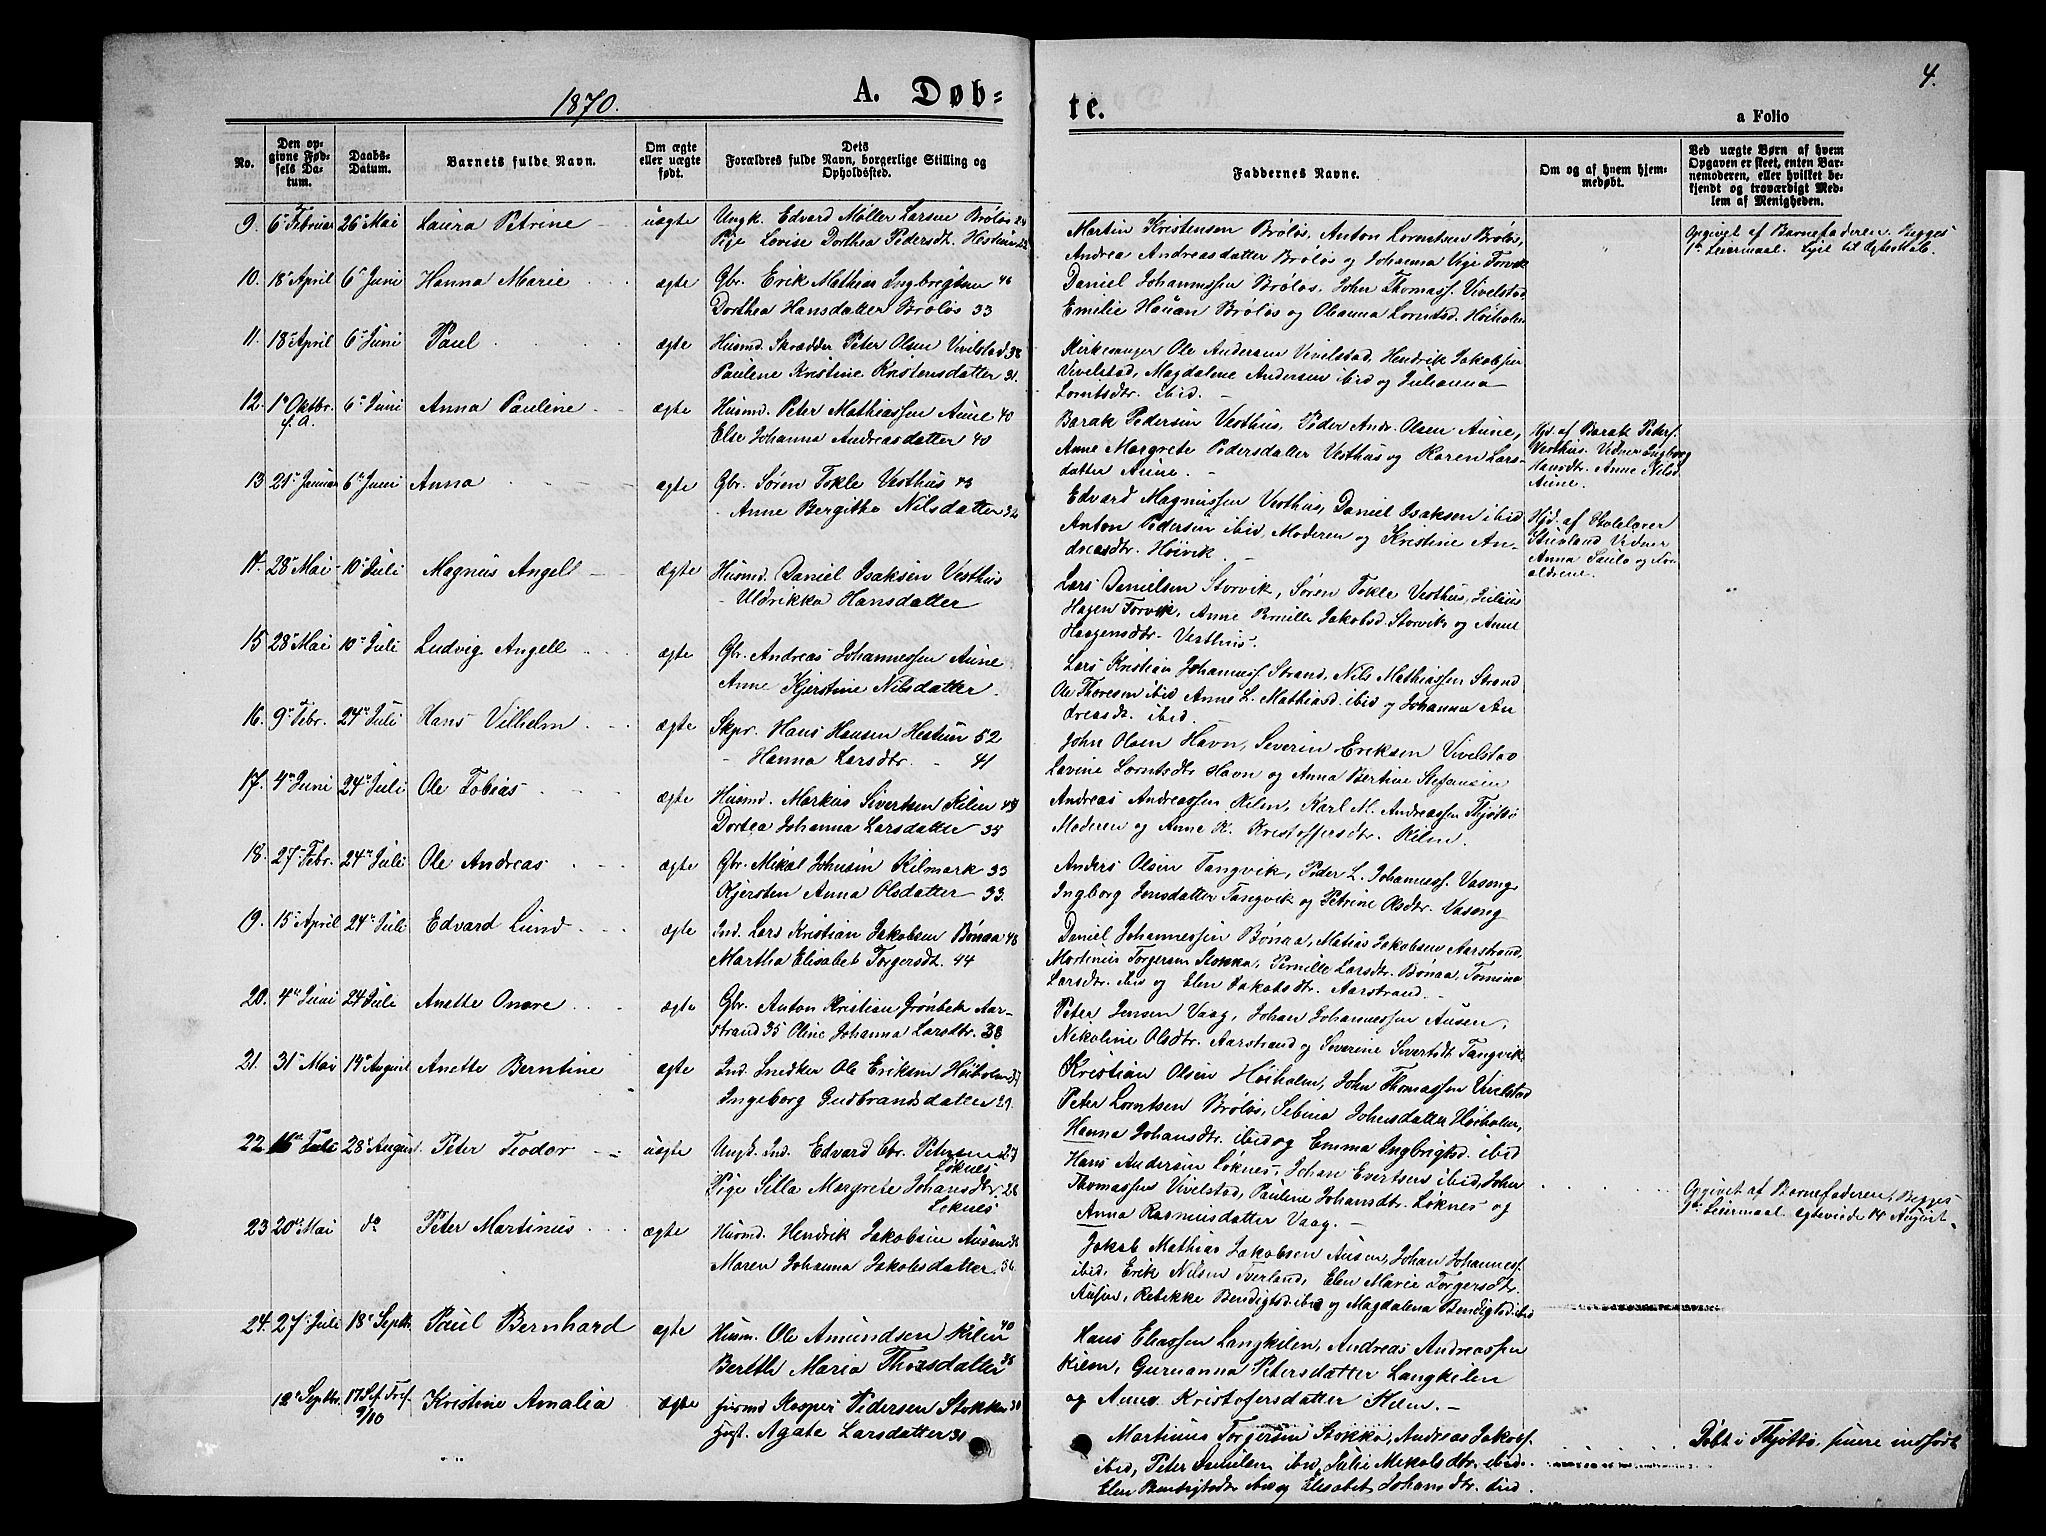 1870.
A. Døb=
te.
a Folio
4.
No.
Den op-
givne Fød-
sels Da-
tum.
Daabs-
Datum.
Barnets fulde Navn.
Om ægte
eller uægte
født.
Dets
Forældres fulde Navn, borgerlige Stilling og
Opholdssted.
Faddernes Navne.
Om og af hvem hjem-
medøbt.
Ved uægte Børn af hvem
Opgaven er skeet, enten Bar-
nemoderen, eller hvilket be-
kjendt og troværdigt Med-
lem af Menigheden.
9. 6te Februar 26de Mai Laura Petrine uægte Ungk. Edvard Møller Larsen Brøløs 24
Pige Lovise Dorthea Pedersdt. Hestun 22
Martin Kristensen Brøløs, Anton Lorntsen Brøløs,
Andrea Andreasdatter Brøløs og Johanna Vige Forvik
Opgivet af Barnefaderen. Begges
1ste Leiermaal. Lyst til Ægteskab.
10. 18de April 6te Juni Hanna Marie ægte Gbr. Erik Mathias Ingbregtsen 46
Dorthea Hansdatter Brøløs 33
Daniel Johannessen Brøløs, John Thomass. Vivelstad
Emilie Houan Brøløs og Oleanna Lorntsd. Høiholm
11. 18de April 6te Juni Paul ægte Husmd. Skrædder Peter Olsen Vivelstad 38
Pauline Kristine Kristensdatter 31.
Kirkesanger Ole Andersen Vivelstad, Hendrik Jakobsen
Vivelstad, Magdalene Andersen ibid og Julianna
Lorntsdtr. ibid.
12. 1ste Oktbr. 6te Juni Anna Pauline ægte Husmd. Peter Mathiassen Aune 40
f. A.
Else Johanna Andreasdatter 40
Barak Pedersen Vesthus, Peder Andr. Olsen Aune,
Anne Margrete Pedersdatter Vesthus og Karen Lars-
datter Aune.
Hjd af Barak Peters.
Vesthus. Vidner Ingborg
Hansdtr. Anne Nilsd
Aune.
13 21de Januar 6te Juni Anna ægte Gbr. Søren Tokle Vesthus 43
Anne Bergitha Nilsdatter 32
Edvard Magnussen Vesthus, Daniel Isaksen ibid
Anton Pedersen ibid, Moderen og Kristine An-
dreasdtr. Høivik.
Hjd. af Skolelærer
Steinland Vidner
Anna Paulo og For-
ældrene.
14. 28de Mai 10de Juli Magnus Angell ægte Husmd. Daniel Isaksen Vesthus
Uldrikka Hansdatter
Lars Danielsen Storvik, Søren Tokle Vesthus, Julius
Hagen Forvik, Anne Pernille Jakobsd. Storvik og Anne
Haagensdtr. Vesthus.
15 28de Mai 10de Juli Ludvig Angell ægte Gbr. Andreas Johannessen Aune
Anne Kjerstine Nilsdatter.
Lars Kristian Johanness. Strand, Nils Mathiassen Strand
Ole Thoresen ibid Anne L. Mathiasd. ibid og Johanna An
dreasdt. ibid.
16. 9de Febr. 24de Juli Hans Vilhelm ægte Skpr. Hans Hansen Hestun 52
Hanna Larsdtr. 41
John Olsen Havn, Severin Eriksen Vivelstad
Lavine Lorntsdtr Havn og Anna Bertine Stefansen
17. 4de Juni 24de Juli Ole Tobias ægte Husmd. Markus Sivertsen Kilen
Dortea Johanna Larsdatter 35
Andreas Andreassen Kilen, Karl M. Andreassen Thjøttø
Moderen og Anne K. Kristoffersdtr. Kilen.
18. 27de Febr. 24de Juli Ole Andreas ægte Gbr. Mikal Johnsen Kilmark 33
Kjersten Anna Olsdatter 33.
Anders Olsen Tangvik, Peder L. Johanness. Vasong
Ingborg Jonsdatter Tangvik og Petrine Olsdtr. Vasong
19. 15de April 24de Juli Edvard Lund ægte Ind. Lars Kristian Jakobsen Bønaa 48
Martha Elisabet Torgersdt. 44
Daniel Johannessen Bønaa, Matias Jakobsen Aarstrand,
Martinus Torgersen Stokka, Pernille Larsdtr. Bønaa, Tomina
Larsdtr. ibid og Elen Jakobsdtr. Aarstrand.
20. 4de Juni 24 Juli Anette Onare ægte Gbr. Anton Kristian Grønbek Aar-
strand 35 Oline Johanna Larsdtr. 38
Peter Jensen Vaag, Johan Johannessen Ausen,
Nikoline Olsdtr. Aarstrand og Severine Sivertsdt Tangvik
21. 31te Mai 14de August Anette Berntine ægte Ind. Snedker Ole Eriksen Høiholm
Ingeborg Gudbrandsdatter 29.
Kristian Olsen Høiholm, John Thomassen Vivelstad
Peter Lorntsen Brøløs, Sebina Johnsdatter Høiholm,
Hanna Johansdtr. ibid og Emma Ingbrigtsd. ibid
22. 16de Juli 28de August Peter Teodor uægte Ungk. Ind. Edvard Chr. Petersen 27
Løknes
Pige Silla Margrete Johansdtr. 28
Løknes
Hans Andersen Løknes, Johan Evertsen ibid, John
Thomassen Vivelstad, Pauline Johansdtr. Løknes og
Anna Rasmusdatter Vaag.
Opgivet af Barnefaderen, Begges
1ste Leiermaal. Egteviede 14 August
23 20de Mai do Peter Martinus ægte Husmd. Hendrik Jakobsen Ausen
Maren Johanna Jakobsdatter. 36
Jakob Mathias Jakobsen Ausen, Johan Johanness.
ibid, Erik Nilsen Tverland, Elen Marie Torgersdtr.
Ausen, Rebekke Bendigtsd. ibid og Magdalena Bendigtsd. ibid
24. 27de Juli 18de Septbr. Paul Bernhard ægte Husm. Ole Amundsen Kilen 40
Berthe Maria Thorsdatter 38
Hans Eliassen Langkilen, Andreas Andreassen
Kilen, Gurianna Petersdatter Langkilen
og Anna Kristofersdatter Kilen.
12te Septbr. Kristine Amalia ægte Husmd Kasper Pedersen Stokka 30
9/10
Hust. Agate Larsdatter 31
Martinus Torgersen Stokka, Andreas Jakobs.
ibid, Peter Samuelsen ibid, Julie Mikalsdtr. ibid.
Elen Benedigtsdtr ibid og Elisabet Johansdtr. ibid.
Døbt i Thjøttø, senere indført